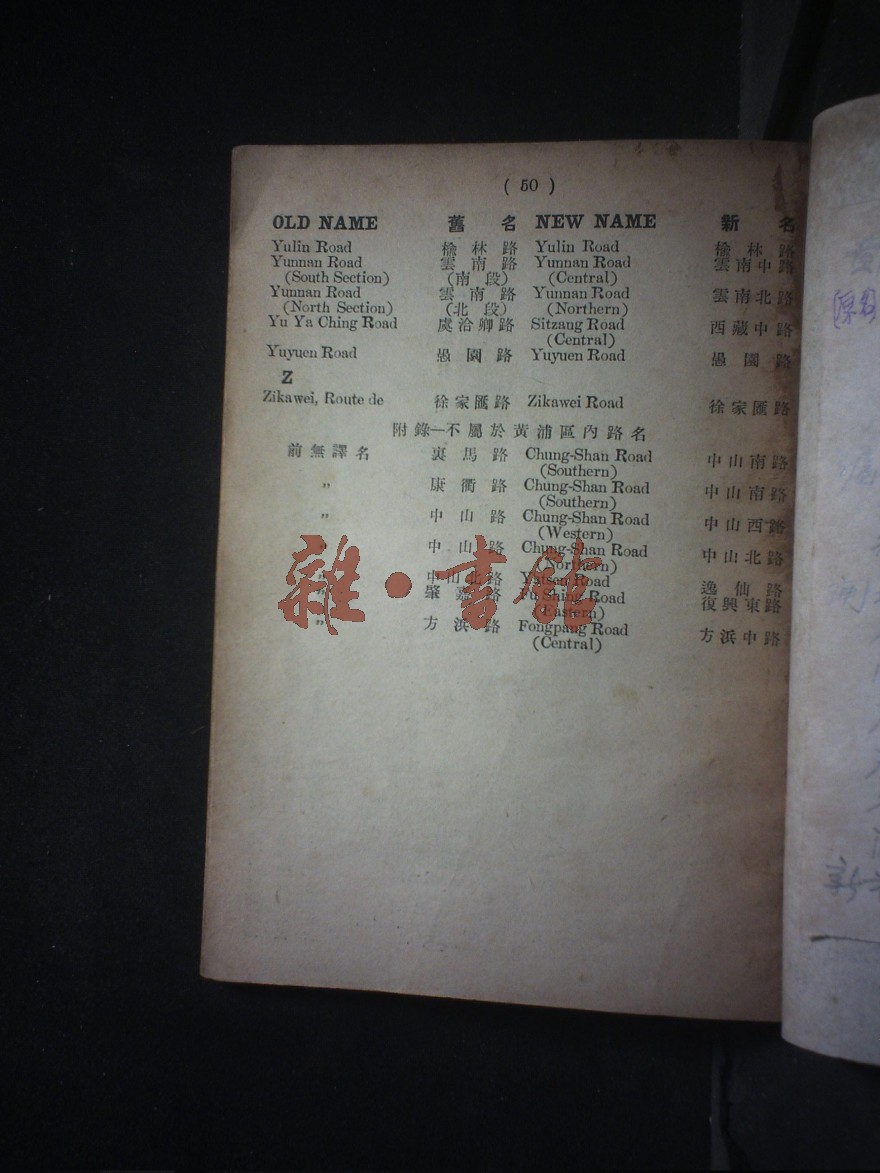 ( 50 )
OLD NAME 舊 名 NEW NAME 新 名
Yulin Road 楡林路 Yulin Road 楡林路
Yunnan Road 雲南路 Yunnan Road 雲南中路
(South Section) (南段) (Central)
Yunnan Road 雲南路 Yunnan Road 雲南北路
(North Section) (北段) (Northern)
Yu Ya Ching Road 虞洽卿路 Sitzang Road 西藏中路
(Central)
Yuyuen Road 愚園路 Yuyuen Road 愚園路
Z
Zikawei, Route de 徐家匯路 Zikawei Road 徐家匯路
附錄—不屬於黃浦區內路名
前無譯名 裏馬路 Chung-Shan Road 中山南路
(Southern)
〃 康衢路 Chung-Shan Road 中山南路
(Southern)
〃 中山路 Chung-Shan Road 中山西路
(Western)
中山路 Chung-Shan Road 中山北路
(Northern)
〃 中山北路 Yatsen Road 逸仙路
〃 肇嘉路 Fu Shing Road 復興東路
(Eastern)
〃 方浜路 Fongpang Road 方浜中路
(Central)
雜·書館